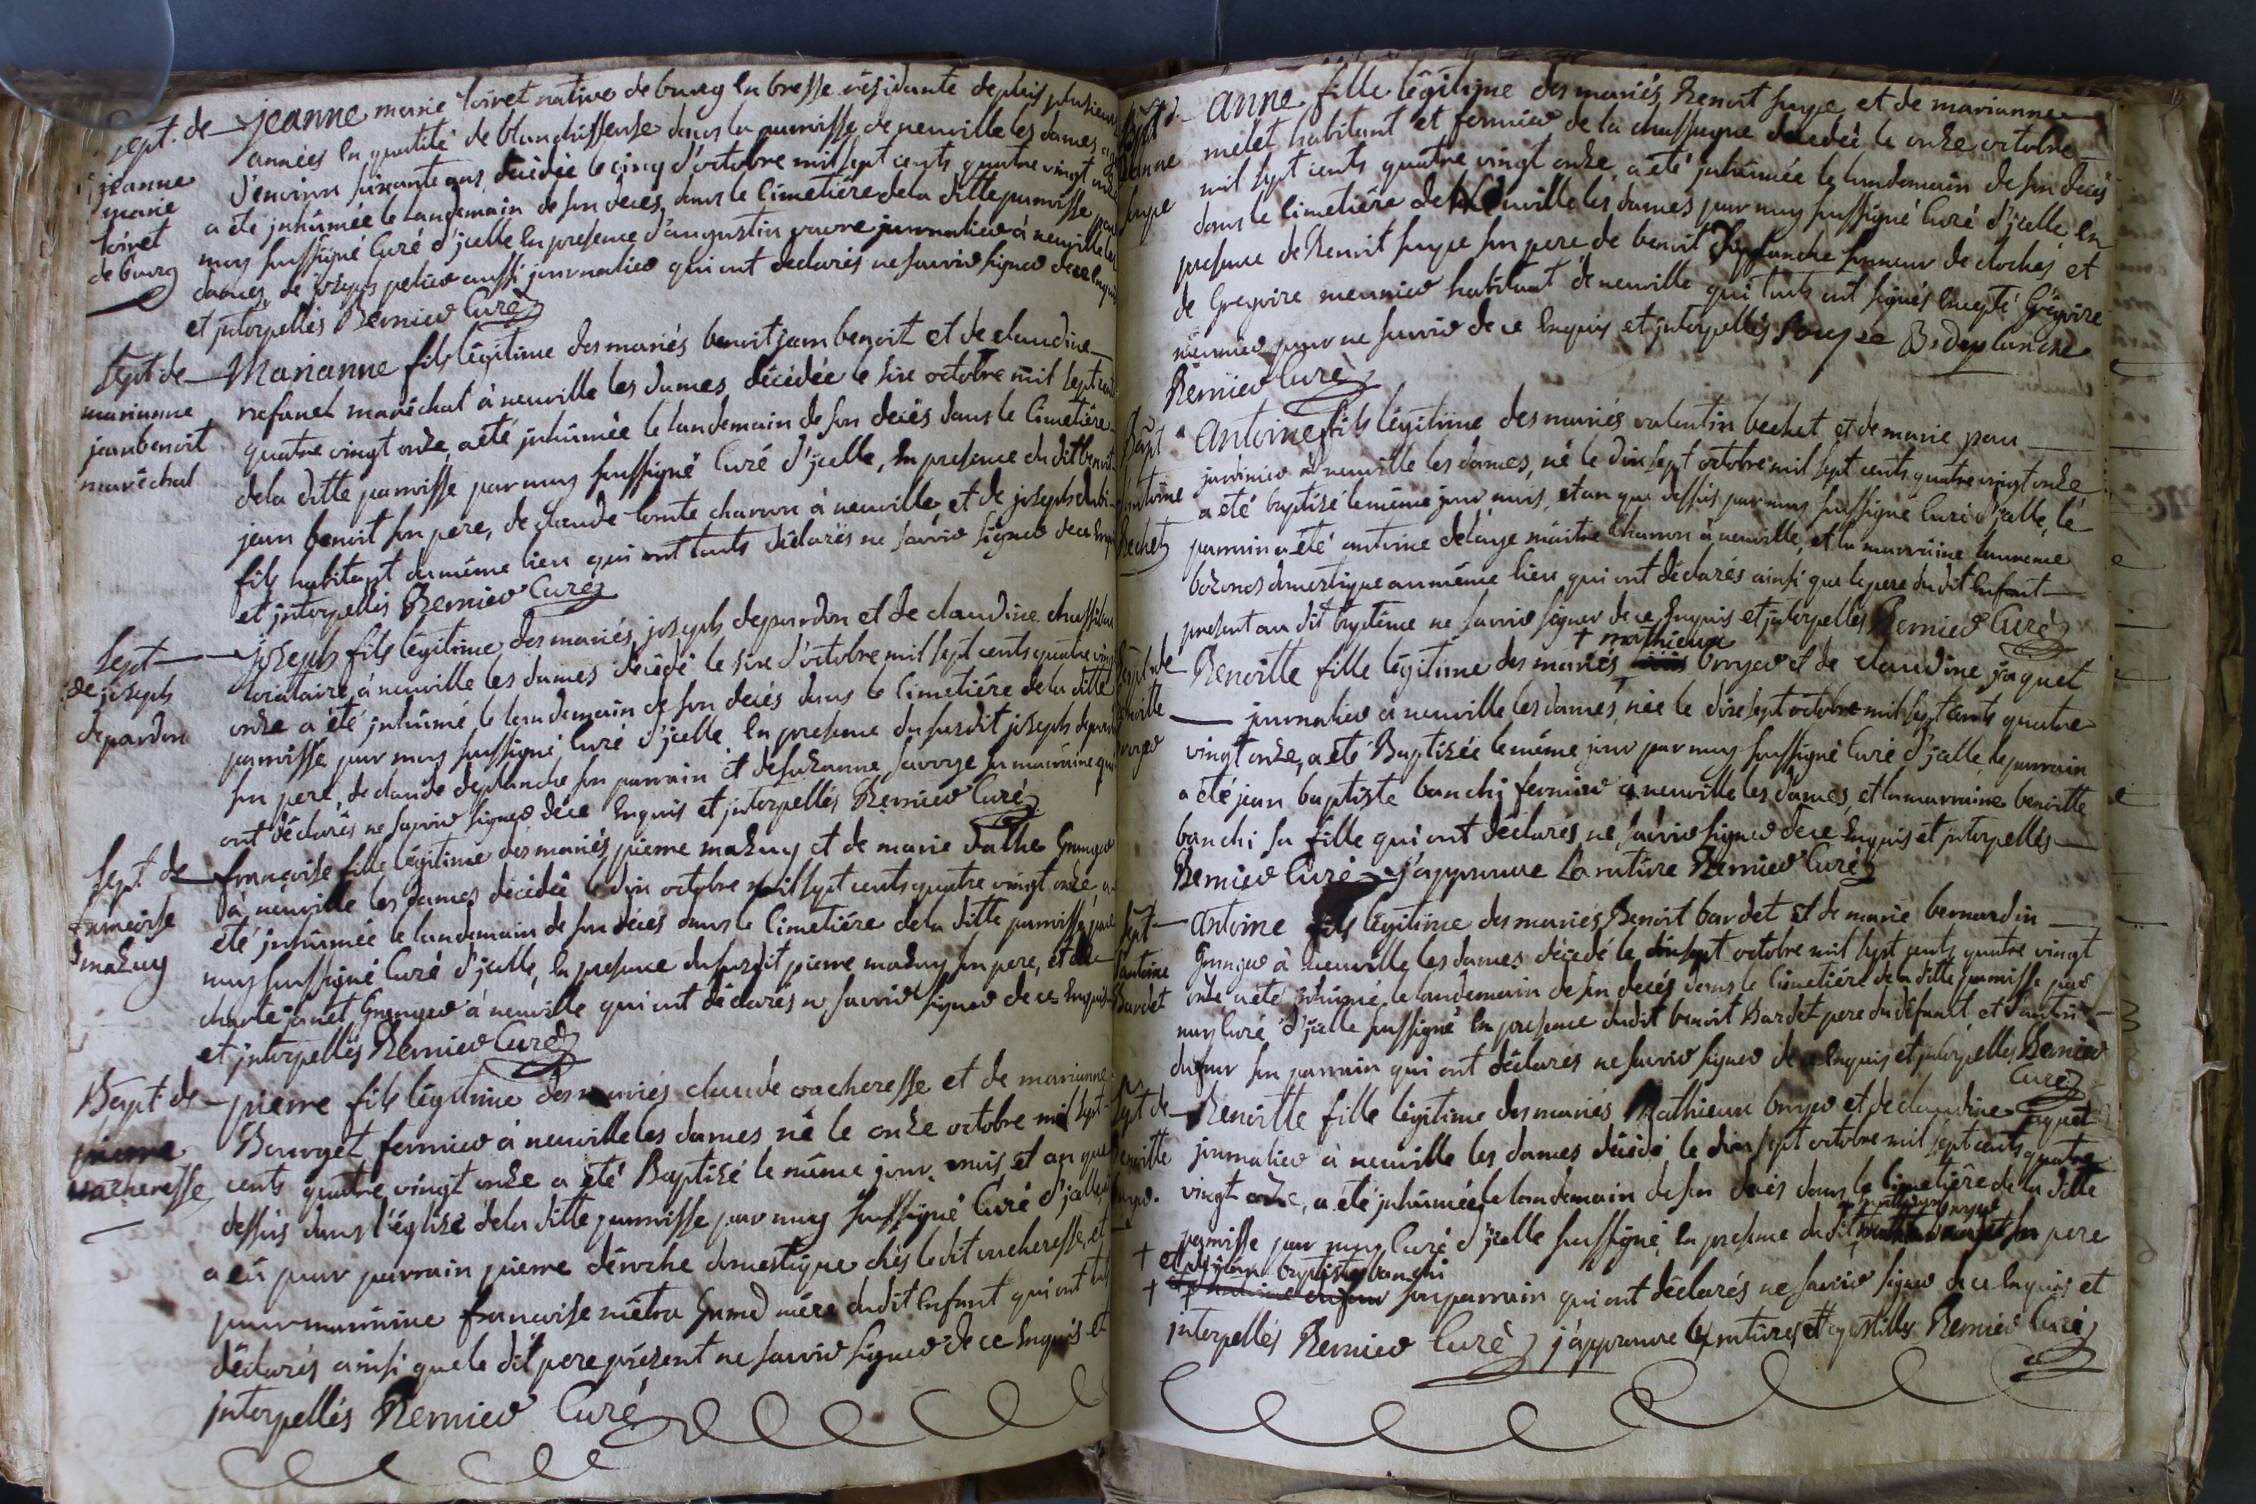 sept. de
jeanne
marie
loiret
de bourg
jeanne marie loiret native de bourg en bresse résidante depuis plusieurs
années en qualité de blanchisseuse dans la paroisse de neuville les dames
d'environ soixante ans, décédée le cinq d'octobre mil sept cents quatre vingt onze
a été inhumée le landemain de son decès, dans le cimetière de la ditte paroisse par
moy soussigné Curé d'jcelle en presence d'augustin journalier à neuville les
dames, de joseph aussi journalier qui ont déclarés ne savoir signer de ce enquis
et jnterpellés Bernier Curé
sept. de
marianne
jean benoit
maréchal
Marianne fils légitime des mariés benoit jean benoit et de claudine
maréchal à neuville les dames décédée le sixe octobre mil sept cents
quatre vingt onze, a été inhumée le landemain de son decès dans le Cimetière
de la ditte paroisse par moy soussigné Curé d'jcelle, en presence du dit benoit
jean benoit son pere, de claude comte charron à neuville et de joseph
fils habitant du même lieu qui ont touts déclarés ne savoir signer de ce enquis
et jnterpellés Bernier Curé
Sept
de joseph
depardon
joseph fils légitime des mariés joseph depardon et de claudine
locataire à neuville les dames décédé le sixe d'octobre mil sept cents quatre vingt
onze a été jnhumé le landemain de son decès dans le cimetière de la ditte
paroisse par moy soussigné Curé d'jcelle en presence du susdit joseph depardon
son pere, de claude deplanche son parrain et de suzanne savoye sa marraine qui
ont déclarés ne savoir signer de ce enquis et jnterpellés Bernier Curé
sept. de
francoise
mazuy
francoise fille légitime des mariés pierre mazuy et de marie Granger
à neuville les dames décédée le dix octobre mil sept cents quatre vingt onze, a
été jnhumée le landemain de son deces dans le Cimetière de la ditte paroisse, par
moy soussigné Curé d'jcelle, en presence du susdit pierre mazuy son pere, et de
charle janet Granger à neuville qui ont déclarés ne savoir signer de ce enquis
et jnterpellés Bernier Curé
Bapt. de
pierre
vacheresse
pierre fils légitime des mariés claude vacheresse et de marianne
Bourget fermier à neuville les dames né le onze octobre mil sept
cents quatre vingt onze a été Baptisé le même jour, mois et an que
dessus dans l'église de la ditte paroisse par moy soussigné Curé d'jcelle
a eû pour parrain pierre déroche domestique chés le dit vacheresse, et
pour marraine francoise métra Grand mére du dit enfant qui ont touts
déclarés ainsi que le dit pere présent ne savoir signer de ce enquis et
jnterpellés Bernier Curé
Sept. d'
anne
anne fille légitime des mariés Benoit et de marianne
melet habitant et fermier de la chassagne décédée le onze octobre
mil sept cents quatre vingt onze, a été jnhumée le landemain de son decès
dans le cimetière de Neuville les dames par moy soussigné Curé d'jcelle, en
presence de Benoit son pere de benoit Desplanche sonneur de cloches et
de Gregoire meunier habitant de neuville qui touts ont signés excepté Grégoire
meunier pour ne savoir de ce enquis et jnterpellés Bs desplanche
Bernier Curé
Bapt
antoine
bechet
antoine fils légitime des mariés valentin bechet et de marie
jardinier à neuville les dames, né le dix sept octobre mil sept cents quatre vingt onze
a été baptisé le même jour, mois, et an que dessus par moy soussigné Curé d'jcelle, le
parrain a été antoine delaye maitre charron à neuville, et la marraine
domestique au même lieu qui ont déclarés ainsi que le pere du dit enfant
present au dit baptême ne savoir signer de ce enquis et jnterpellés Bernier Curé
Bapt. de
benoitte
broyer
+ mathieux
Benoitte fille légitime des mariés broyer et de claudine jaquet
journalier à neuville les dames, née le dix sept octobre mil sept cents quatre
vingt onze, a été Baptisée le même jour par moy soussigné Curé d'jcelle, le parrain
a été jean baptiste banchi fermier à neuville les dames, et la marraine benoitte
banchi sa fille qui ont déclarés ne savoir signer de ce enquis et jnterpellés
Bernier Curé j'approuve La rature Bernier Curé
Sept
d'antoine
Bardet
antoine fils légitime des mariés Benoit bardet et de marie bernardin
Granger à neuville les dames décédé le dix sept octobre mil sept cents quatre vingt
onze a été jnhumé, le landemain de son decès dans le Cimetière de la ditte paroisse par
moy Curé d'jcelle soussigné en presence du dit benoit Bardet pere du défunt et d'antoine
dufour son parrain qui ont déclarés ne savoir signer de ce enquis et jnterpellés Bernier
Curé
Sept. de
benoitte
broyer
Benoitte fille légitime des mariés Mathieux broyer et de claudine jaquet
journalier à neuville les dames décédé le dix sept octobre mil sept cents quatre
vingt onze, a été jnhumée le landemain de son decès dans le cimetière de la ditte
mathieux broyer
paroisse par moy Curé d'jcelle soussigné, en presence du dit son pere
+ et de jean baptiste banchi
+ et d'antoine dufour son parrain qui ont déclarés ne savoir signer de ce enquis et
jnterpellés Bernier Curé j'approuve les ratures et apostilles Bernier Curé